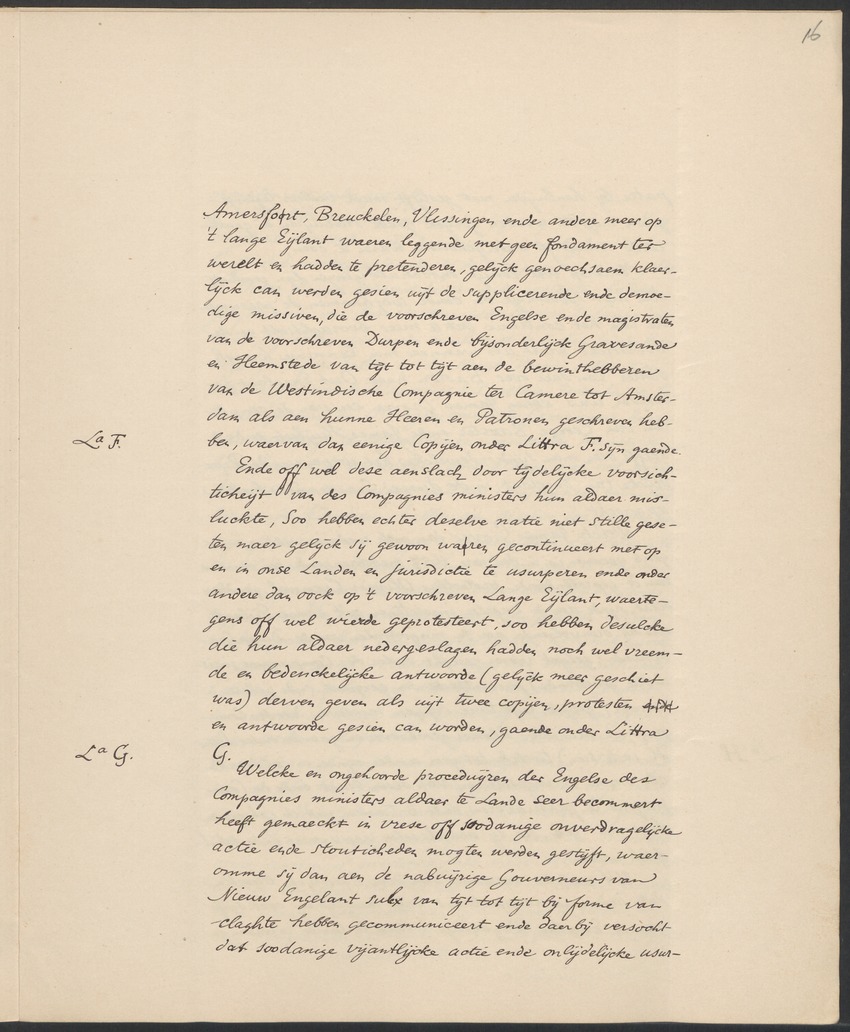 16
Amersfort, Breuckelen, Vlissingen ende andere meer op
't lange Eijlant waeren leggende met geen fondament ter
werelt en hadden te pretenderen, gelijck genoechsaem klaer-
lijck can werden gesien uijt de supplicerende ende demoe-
dige missiven, die de voorschreven Engelse ende magistraten
van de voorschreven Durpen ende bijsonderlijck Gravesande
en Heemstede van tijt tot tijt aen de bewinthebberen
van de Westindische Compagnie ter Camere tot Amster-
dam als aen hunne Heeren en Patronen geschreven heb-
La F.
ben, waervan dan eenige Copijen onder Littra F. sijn gaende.
Ende off wel dese aenslach door tijdelijcke voorsich-
ticheijt van des Compagnies ministers hun aldaer mis-
luckte, Soo hebben echter deselve natie niet stille gese-
ten maer gelijck sij gewoon waeren gecontinueert met op
en in onse Landen en jurisdictie te usurperen ende onder
andere dan oock op 't voorschreven Lange Eijlant, waerte-
gens off wel wierde geprotesteert, soo hebben desulcke
die hun aldaer nedergeslagen hadden noch wel vreem-
de en bedenckelijcke antwoorde (gelijck meer geschiet
was) derven geven als uijt twee copijen, protesten
en antwoorde gesien can worden, gaende onder Littra
La G.
G.
Welcke en ongehoorde proceduijren der Engelse des
Compagnies ministers aldaer te Lande seer becommert
heeft gemaeckt in vrese off soodanige onverdragelijcke
actie ende stouticheden mogten werden gestijft, waer-
omme sij dan aen de nabuijrige Gouverneurs van
Nieuw Engelant sulx van tijt tot tijt bij forme van
claghte hebben gecommuniceert ende daerbij versocht
dat soodanige vijantlijcke actie ende onlijdelijcke usur-